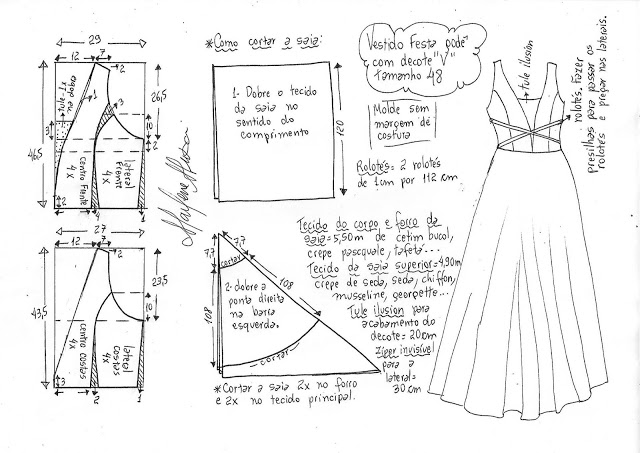 29
12
7
2
1
3
26,5
10
2
3
46,5
tule 1x
na dobra
centro Frente
4x
lateral
Frente
4x
2
4
1
27
12
7
2
23,5
10
43,5
centro costas
4x
lateral
costas
4x
3
2
1
Marlene Mukai
*Como cortar a saia:
1- Dobre o tecido
da saia no
sentido do
comprimento
120
7,7
7,7
cortar
108
108
2- dobre a
ponta direita
na barra
esquerda.
cortar
*Cortar a saia 2x no forro
e 2x no tecido principal.
Vestido Festa pode
com decote "V"
tamanho 48
Molde sem
margem de
costura
Rolotês: 2 rolotês
de 1cm por 112 cm
Tecido do corpo e forro da
saia=5,50m de cetim bucol,
crepe pascquale, tafetá...
Tecido da saia superior=4,90m
crepe de seda, seda, chiffon,
musseline, georgette...
Tule ilusion para
acabamento do
decote=20cm
Zíper invisível
para a
lateral=
30 cm
tule ilusión
rolotês. Fazer
presilhas para passar os
rolotês e pregar nas laterais.